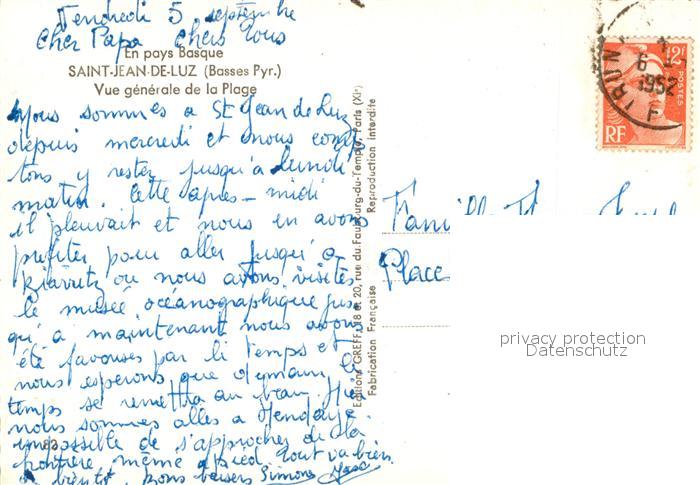 Vendredi 5 septembre
Cher Papa Chers tous
En pays Basque
SAINT-JEAN-DE-LUZ (Basses Pyr.)
Vue générale de la Plage
Nous sommes a St Jean de Luz
depuis mercredi et nous comp
tons y rester jusqu'a lundi
matin. Cette apres-midi
il pleuvait et nous en avons
profiter pour aller jusqu'a
Biarritz ou nous avons visités
le musée océanographique jus
qu'a maintenant nous avons
été favorisés par le Temps et
nous esperons que demain le
temps se remettra au beau. Hier
nous sommes alles a Hendaye
impossible de s'approcher de la
frontière même a pied. Tout va bien
a bientôt. bons baisers Simone
Editions GREFF, 18 et 20, rue du Faubourg-du-Temple, Paris (XIe)
Fabrication Française
Reproduction Interdite
Famille
Place
12F
POSTES
RF
6
1952
privacy protection
Datenschutz